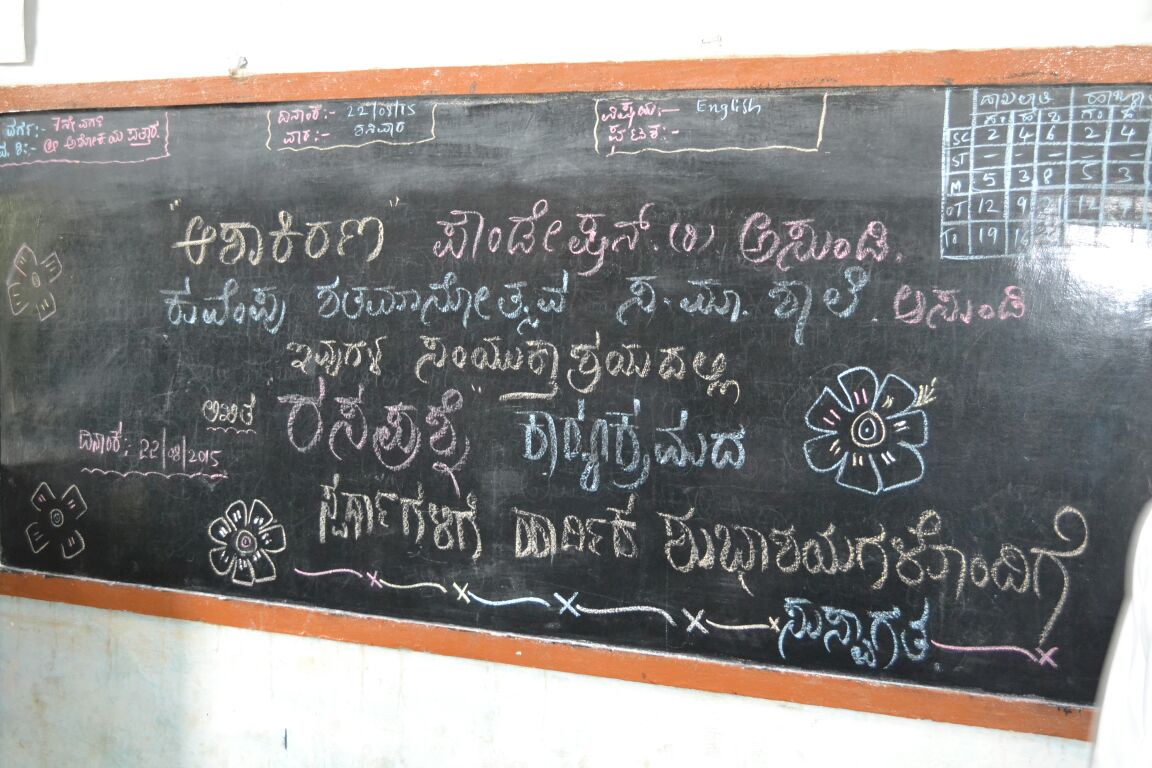 ವರ್ಗ:- 7ನೇ ವರ್ಗ
ದಿನಾಂಕ:- 22/08/15
ವಾರ:- ಶನಿವಾರ
ವಿಷಯ:- English
ಘಟಕ:-
ದಾಖಲಾತಿ ಹಾಜರಾತಿ
SC 2 4 6 2 4
ST - - - - -
M 5 3 8 5 3
OT 12 9 21 12
TO 19
"ಆಶಾಕಿರಣ" ಫೌಂಡೇಷ್ರನ್.(ರಿ) ಅಸುಂಡಿ.
ಕುವೆಂಪು ಶತಮಾನೋತ್ಸವ ಸ.ಮಾ.ಶಾಲೆ. ಅಸುಂಡಿ
ಇವುಗಳ ಸಂಯುಕ್ತಾಶ್ರಯದಲ್ಲಿ
"ರಸಪ್ರಶ್ನೆ" ಕಾರ್ಯಕ್ರಮದ
ದಿನಾಂಕ: 22/08/2015
ಸ್ಪರ್ಧಿಗಳಿಗೆ ಹಾರ್ದಿಕ ಶುಭಾಶಯಗಳೊಂದಿಗೆ
ಸುಸ್ವಾಗತ